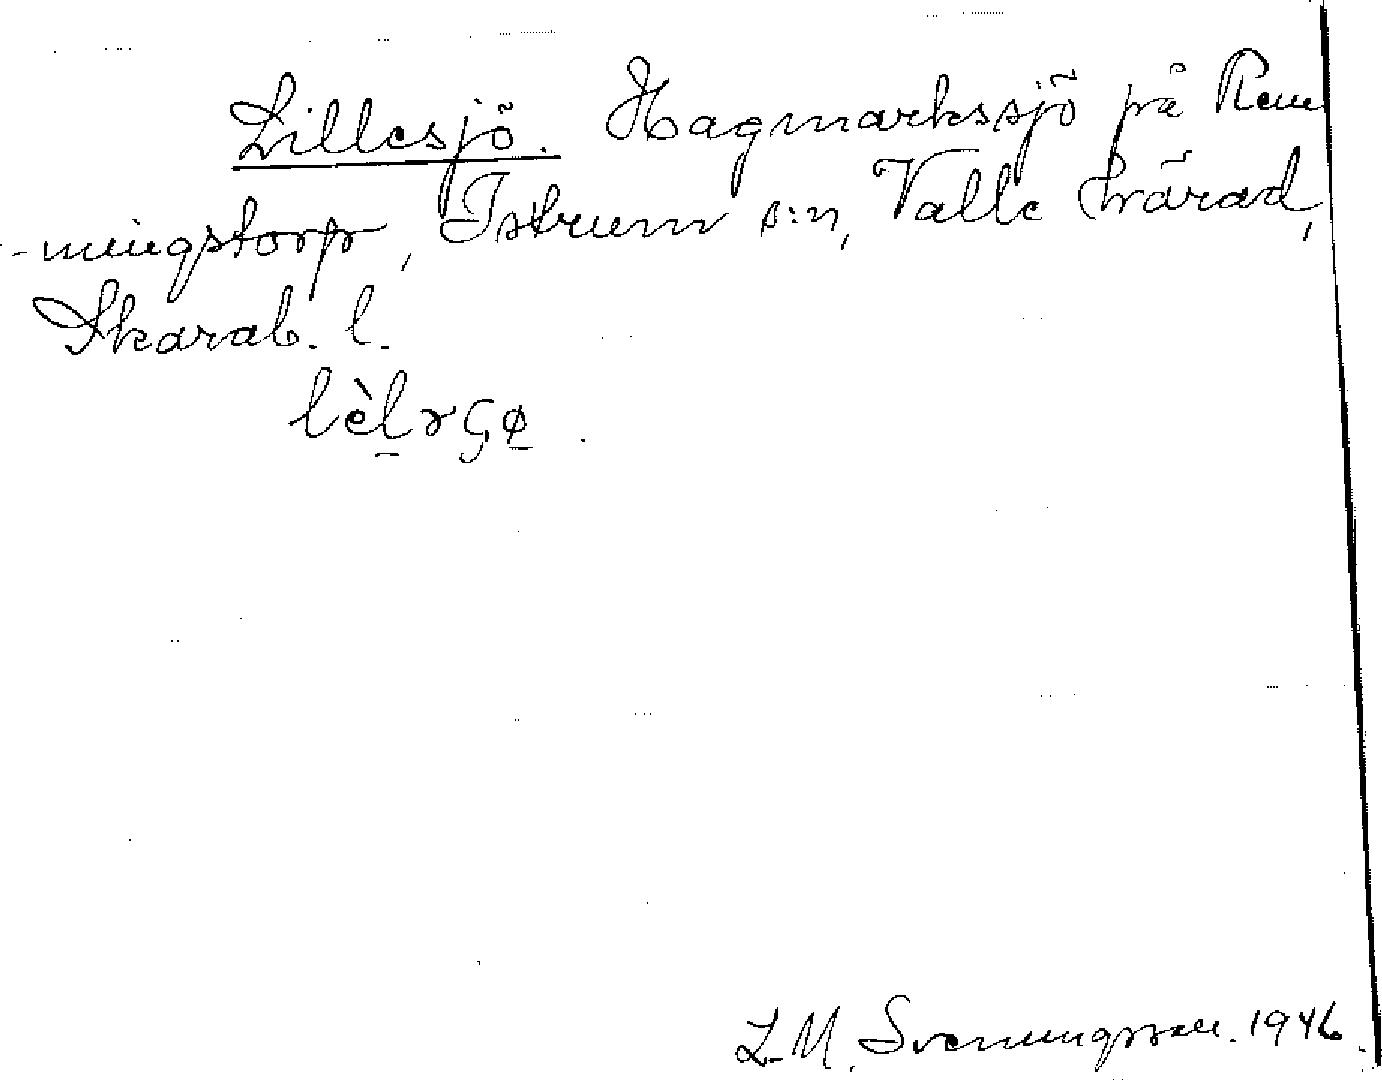 Lillesjö. Hagmarkssjö på Ren
-ningstorp, Istrum s:n, Valle härad,
Skarab. l.
lèlrçø.
L. M. Svenungsson. 1946.